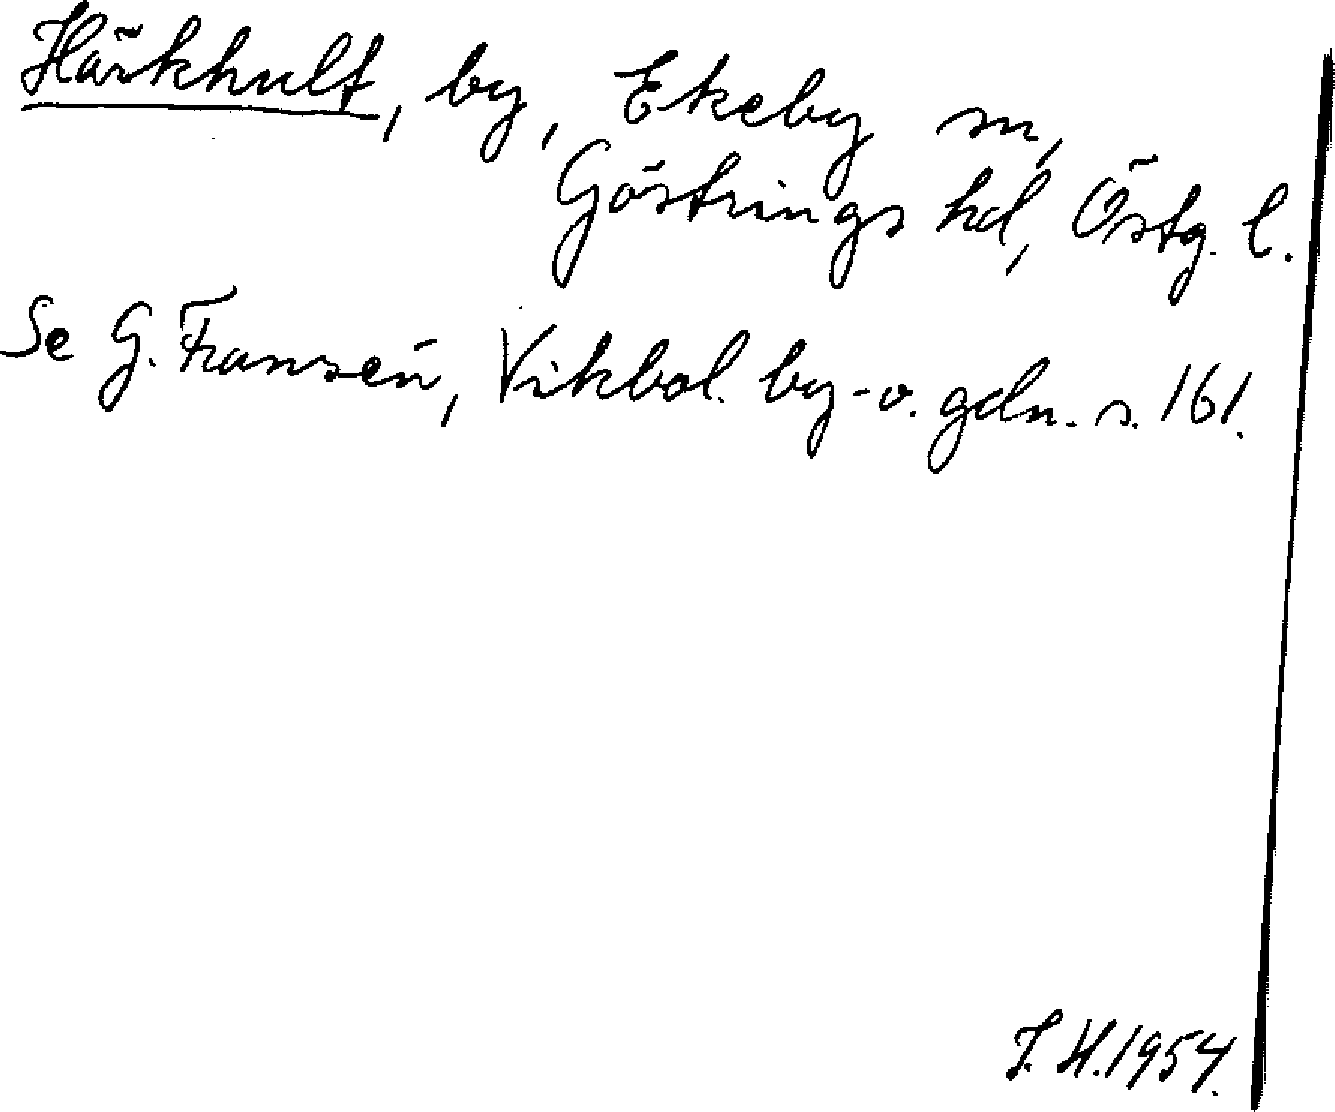 Härkhult, by, Ekeby sn,
Göstrings hd, Östg. l.
Se G. Fransén, Vikbol. by- o. gdn. s. 161.
I. H. 1954.